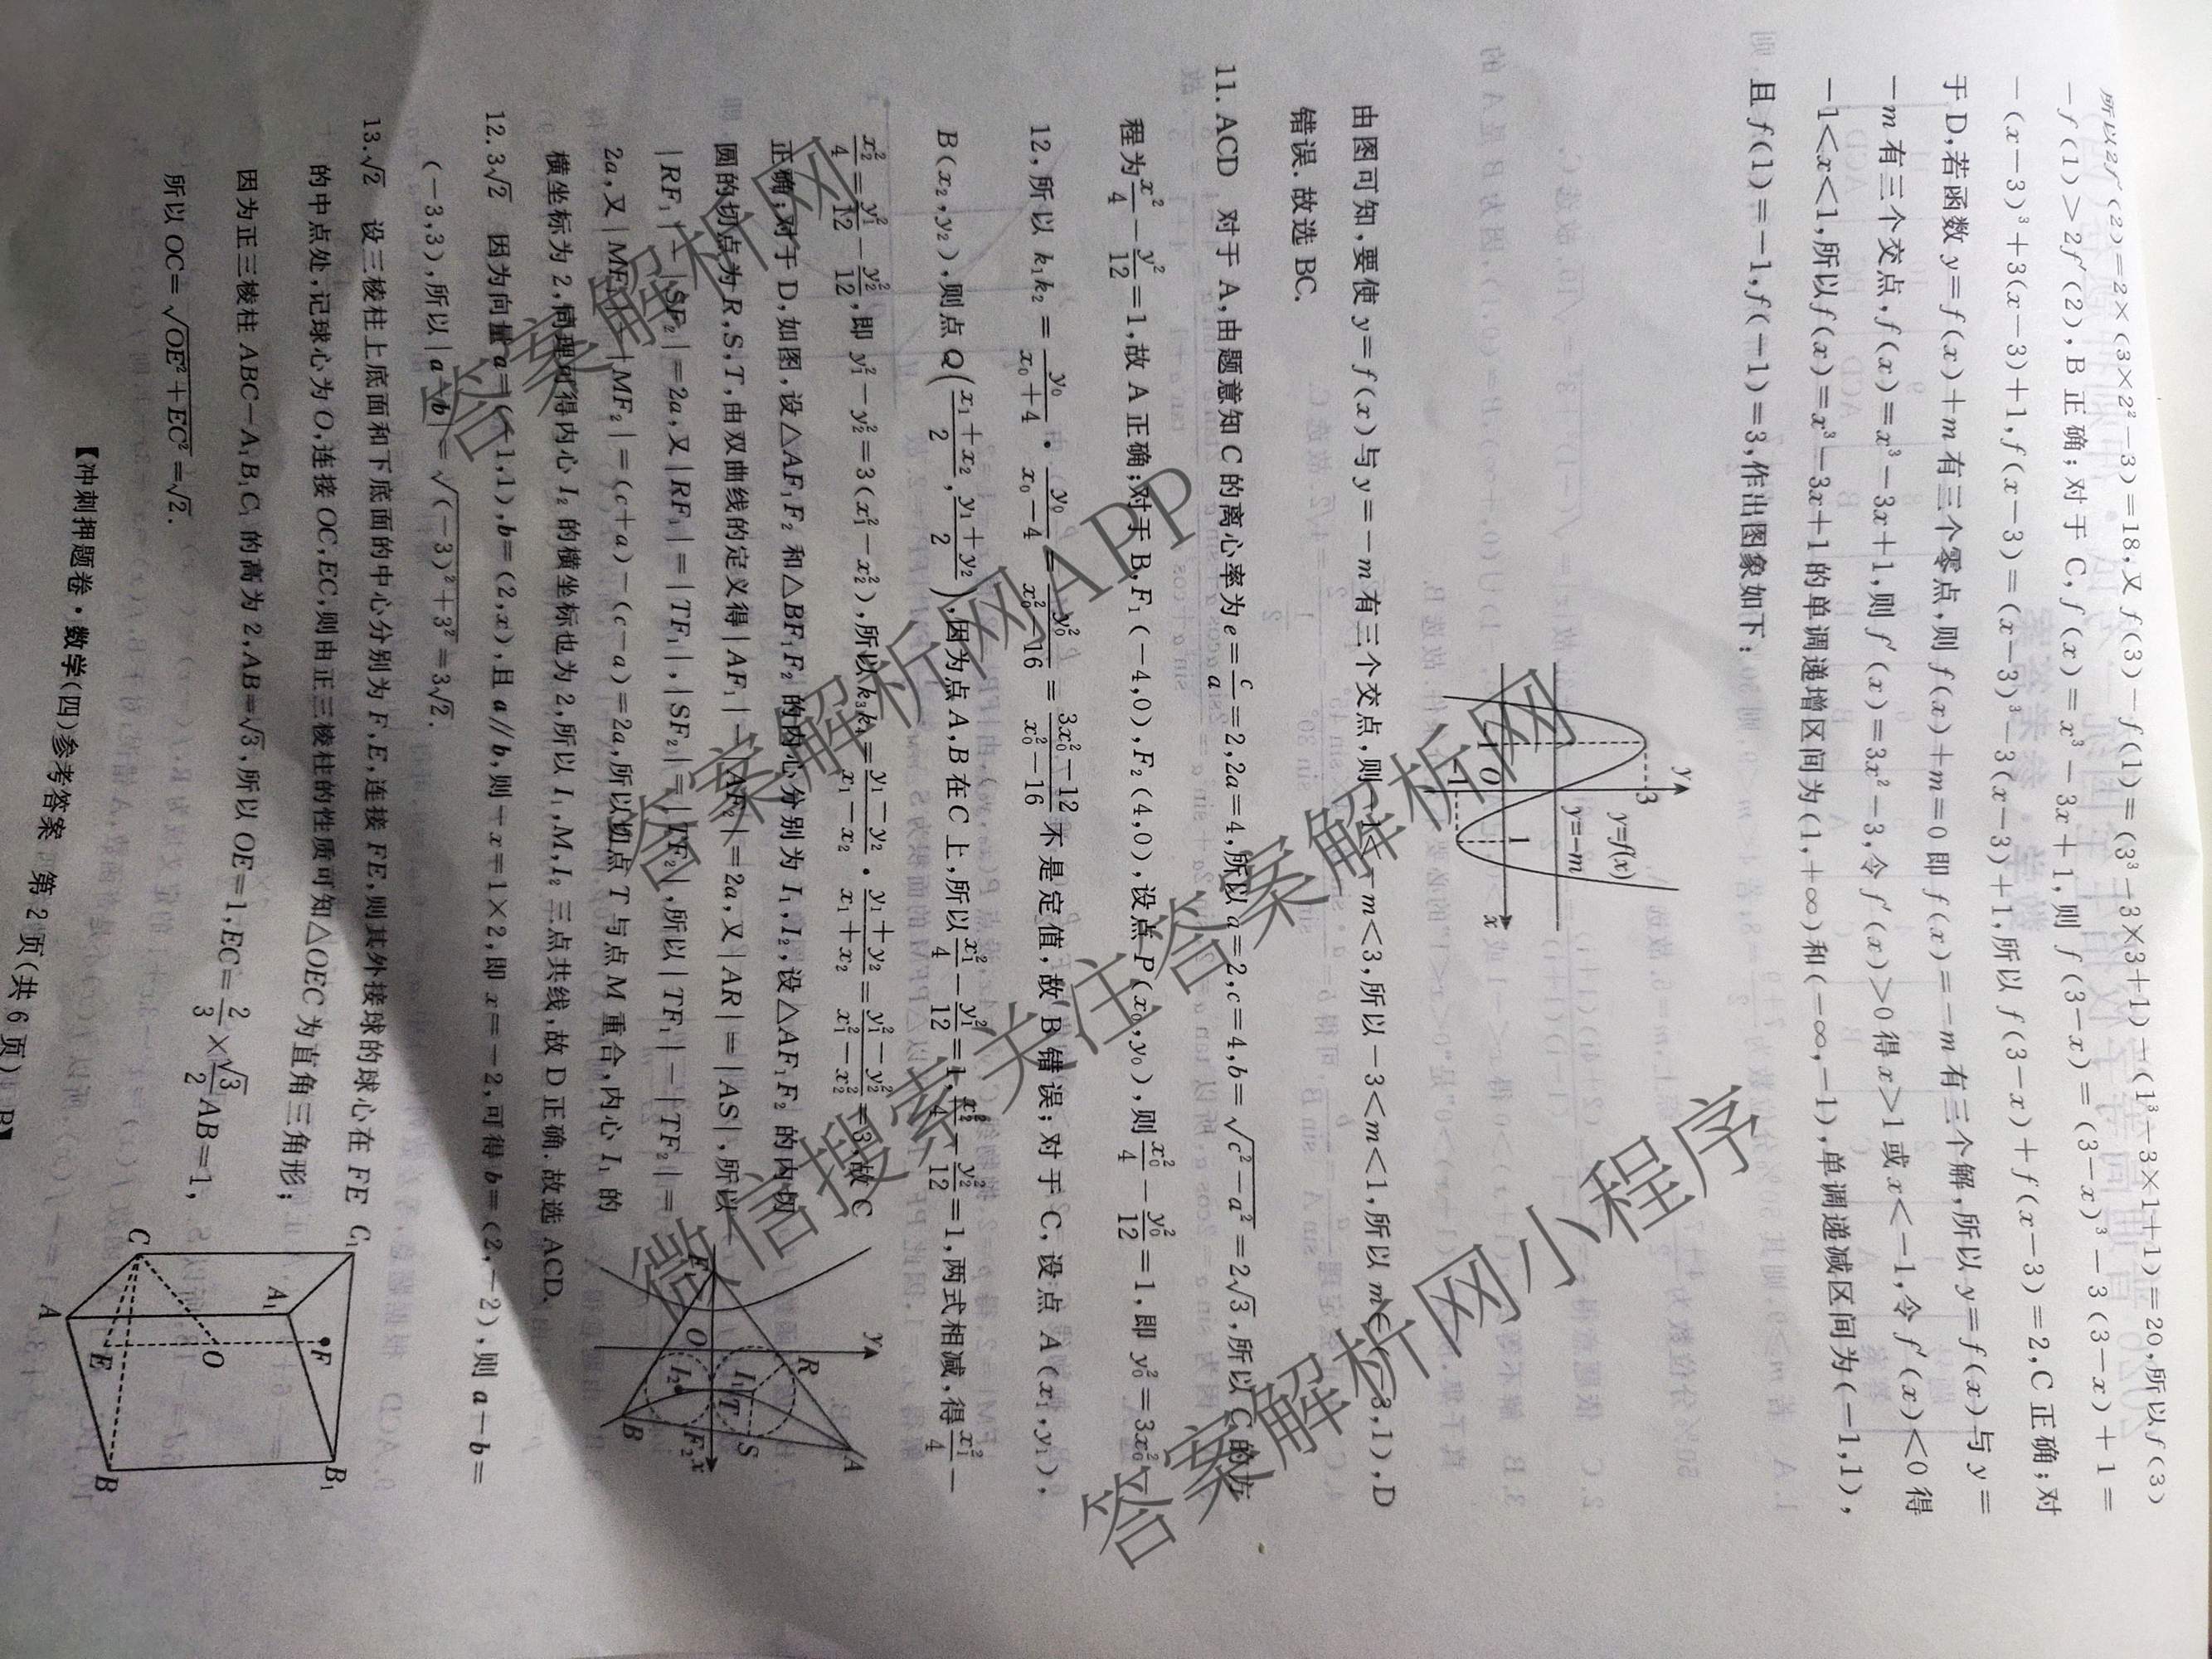 所以2f'(2)=2×(3×2²-3)=18,又 f(3)-f(1)=(3³-3×3+1)-(1³-3×1+1)=20,所以 f(3)
-f(1)>2f'(2),B 正确;对于 C,f(x)=x³-3x+1,则 f(3-x)=(3-x)³-3(3-x)+1=
-(x-3)³+3(x-3)+1,f(x-3)=(x-3)³-3(x-3)+1,所以 f(3-x)+f(x-3)=2,C 正确;对
于 D,若函数 y=f(x)+m 有三个零点,则 f(x)+m=0 即 f(x)=-m 有三个解,所以 y=f(x)与 y=
-m 有三个交点,f(x)=x³-3x+1,则 f'(x)=3x²-3,令 f'(x)>0 得 x>1 或 x<-1,令 f'(x)<0 得
-1<x<1,所以 f(x)=x³-3x+1 的单调递增区间为(1,+∞)和(-∞,-1),单调递减区间为(-1,1),
且 f(1)=-1,f(-1)=3,作出图象如下:
y
3
y=f(x)
y=-m
-1
O
1
x
-1
由图可知,要使 y=f(x)与 y=-m 有三个交点,则-1<-m<3,所以-3<m<1,所以 m∈(-3,1),D
错误.故选 BC.
11. ACD 对于 A,由题意知 C 的离心率为 e=c/a=2,2a=4,所以 a=2,c=4,b=√(c²-a²)=2√3,所以 C 的方
程为 x²/4-y²/12=1,故 A 正确;对于 B,F₁(-4,0),F₂(4,0),设点 P(x₀,y₀),则 x₀²/4-y₀²/12=1,即 y₀²=3x₀²-
12,所以 k₁k₂=y₀/(x₀+4)·y₀/(x₀-4)=y₀²/(x₀²-16)=(3x₀²-12)/(x₀²-16)不是定值,故 B 错误;对于 C,设点 A(x₁,y₁),
B(x₂,y₂),则点 Q((x₁+x₂)/2,(y₁+y₂)/2),因为点 A,B 在 C 上,所以 x₁²/4-y₁²/12=1,x₂²/4-y₂²/12=1,两式相减,得 x₁²/4-
x₂²/4=y₁²/12-y₂²/12,即 y₁²-y₂²=3(x₁²-x₂²),所以 k₃k₄=(y₁-y₂)/(x₁-x₂)·(y₁+y₂)/(x₁+x₂)=(y₁²-y₂²)/(x₁²-x₂²)=3,故 C
正确;对于 D,如图,设△AF₁F₂ 和△BF₁F₂ 的内心分别为 I₁,I₂,设△AF₁F₂ 的内切
圆的切点为 R,S,T,由双曲线的定义得|AF₁|-|AF₂|=2a,又|AR|=|AS|,所以
|RF₁|-|SF₂|=2a,又|RF₁|=|TF₁|,|SF₂|=|TF₂|,所以|TF₁|-|TF₂|=
2a,又|MF₁|-|MF₂|=(c+a)-(c-a)=2a,所以切点 T 与点 M 重合,内心 I₁ 的
横坐标为 2,同理可得内心 I₂ 的横坐标也为 2,所以 I₁,M,I₂ 三点共线,故 D 正确.故选 ACD.
y
A
R
I₁
S
T
O
F₂
x
I₂
B
12. 3√2 因为向量 a=(-1,1),b=(2,x),且 a∥b,则-x=1×2,即 x=-2,可得 b=(2,-2),则 a-b=
(-3,3),所以|a-b|=√((-3)²+3²)=3√2.
13. √2 设三棱柱上底面和下底面的中心分别为 F,E,连接 FE,则其外接球的球心在 FE
的中点处,记球心为 O,连接 OC,EC,则由正三棱柱的性质可知△OEC 为直角三角形;
因为正三棱柱 ABC-A₁B₁C₁ 的高为 2,AB=√3,所以 OE=1,EC=2/3×√3/2AB=1,
所以 OC=√(OE²+EC²)=√2.
C₁
B₁
A₁
F
O
C
E
B
A
【冲刺押题卷·数学(四)参考答案 第 2 页(共 6 页) B】
答案解析网
答案解析网APP
微信搜索关注答案解析网
答案解析网小程序